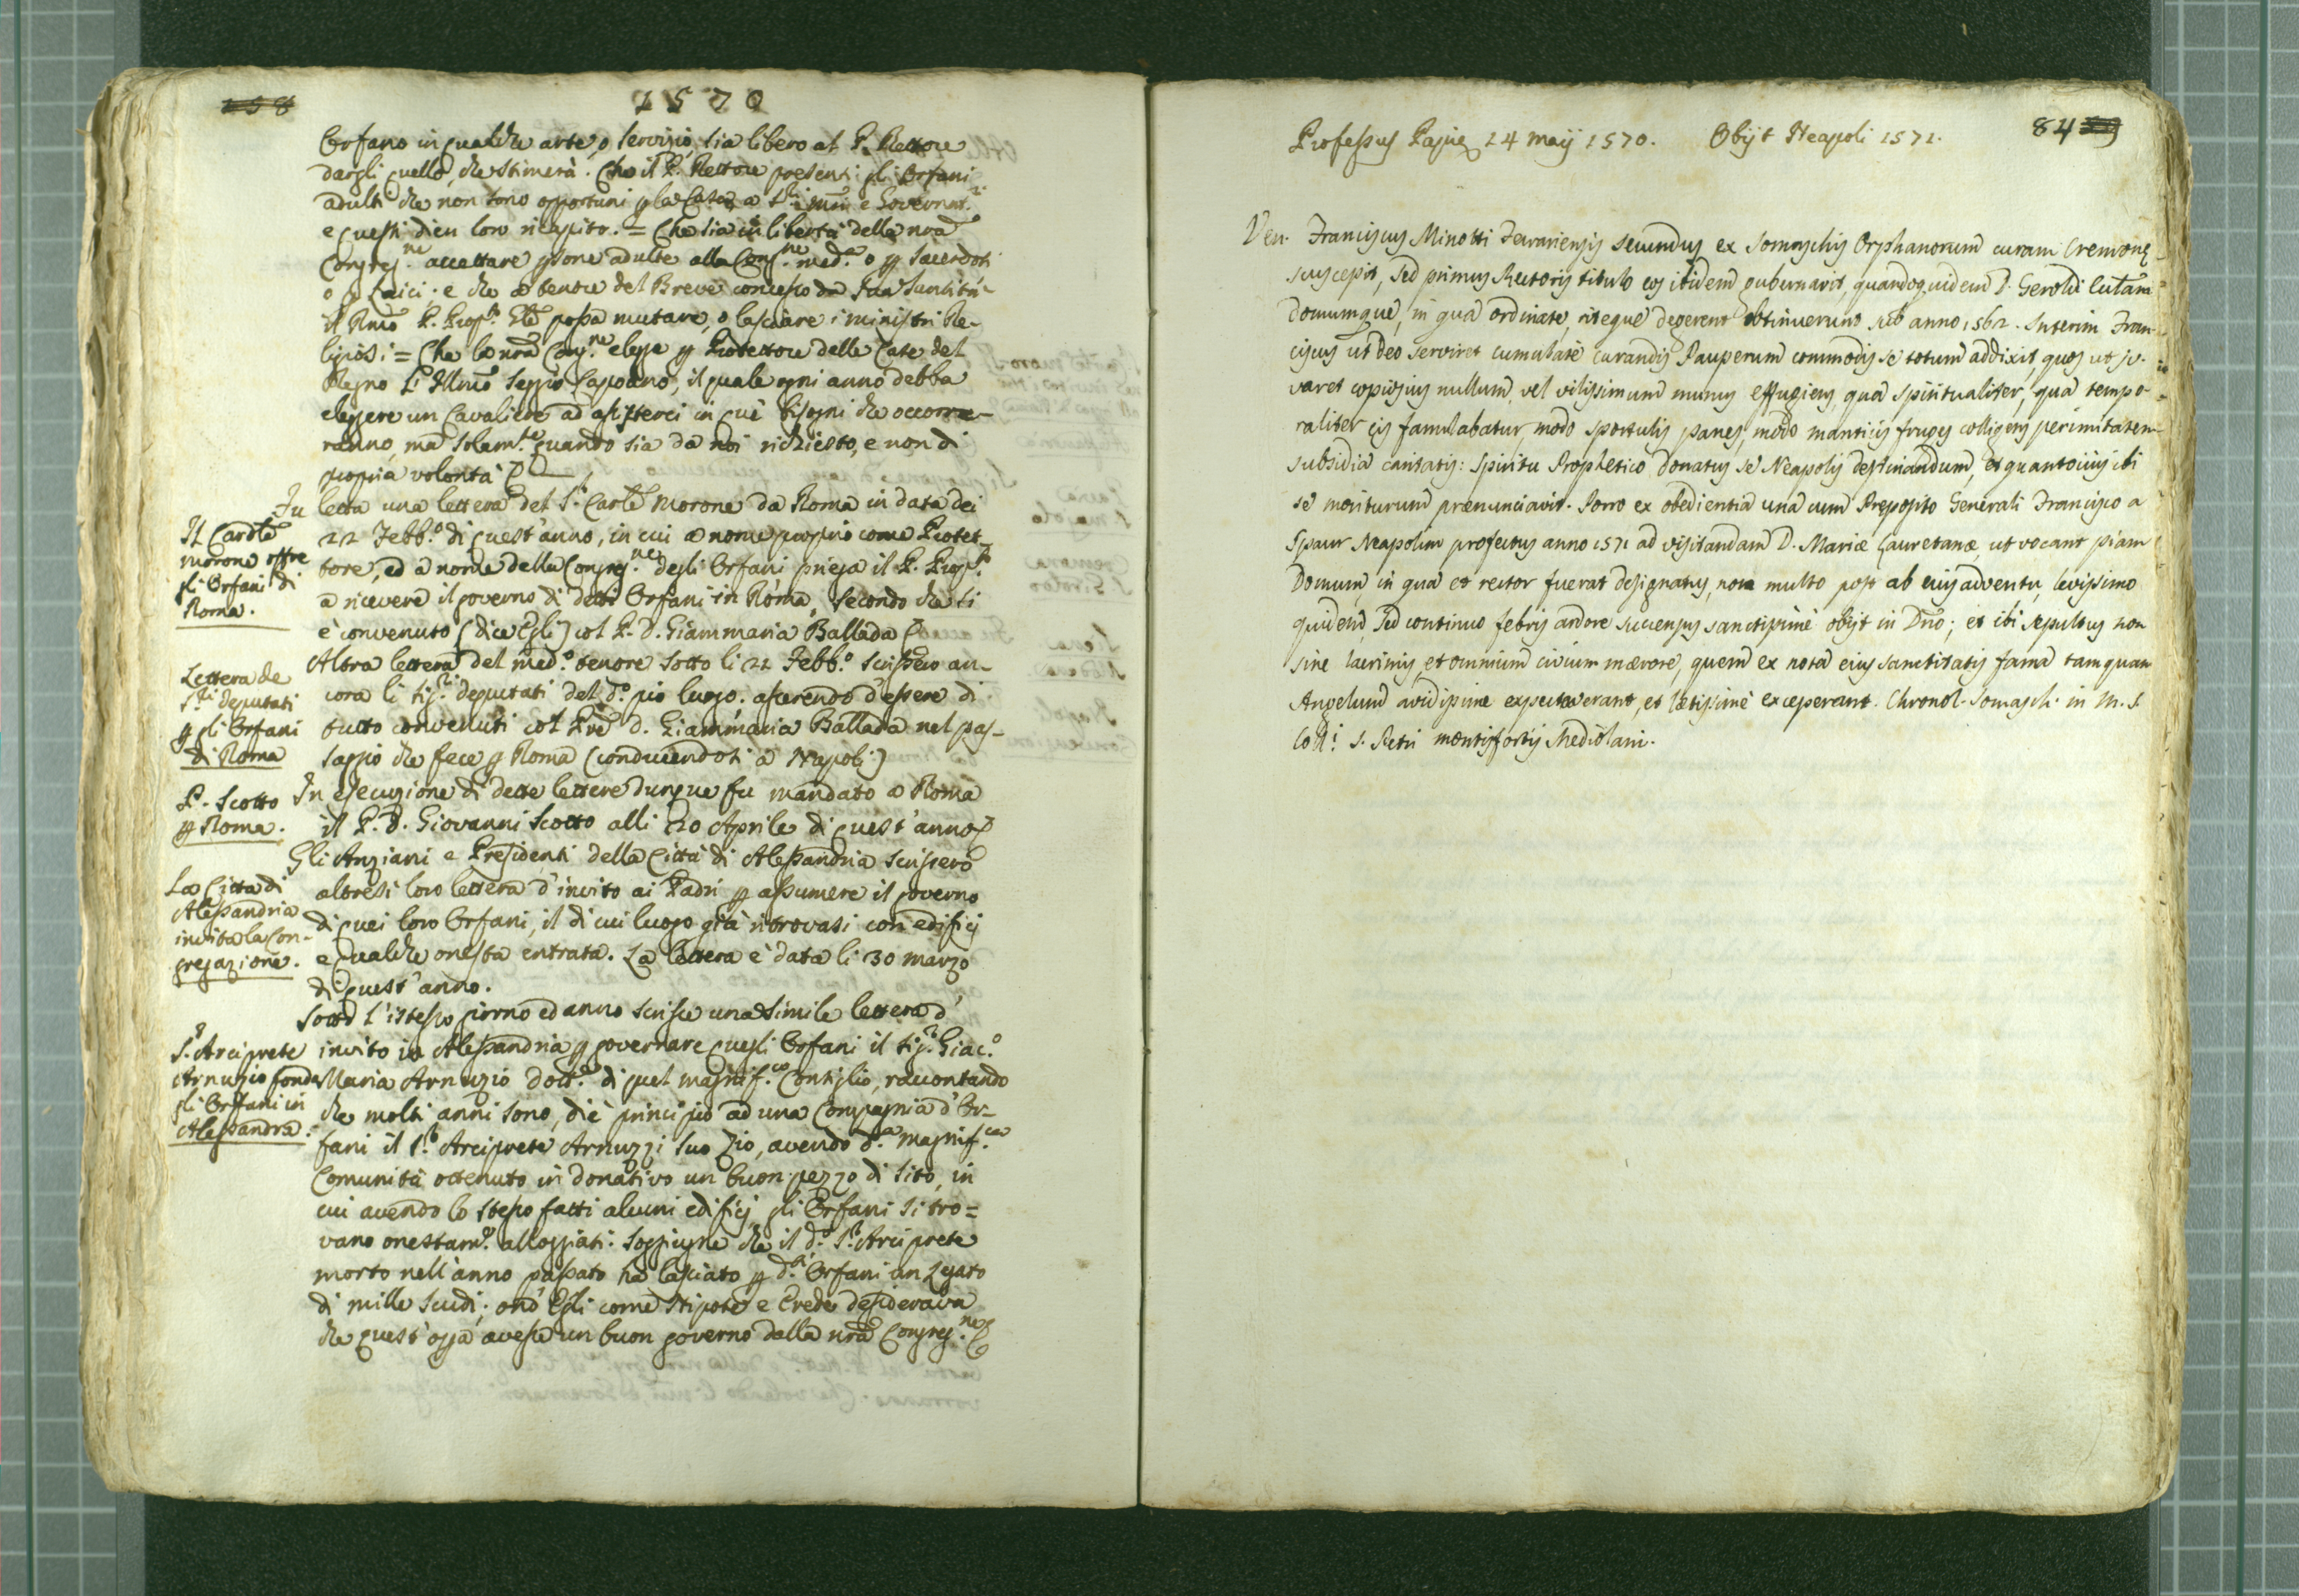 1570
Orfano in qualche arte, o servizio, sia libero al P. Rettore
dargli quello, che stimerà. Che il P. Rettore presenti gli Orfani
adulti che non sono opportuni p la Casa a Sri mri e Governat.ri
e questi dieu loro ricapito. = Che sia in libertà della nrã
Congreg.ne accettare psone adulte alla Cong.ne med.a o p Sacerdoti
o p Laici; e che a tenore del Breve concesso da Sua Santità
il Rmõ P. Prop.to Gle possa mutare, o lasciare i ministri Re-
ligiosi = Che la nrã Cong.ne elegge p Protettore delle Case del
Regno l'Illmõ Seggio Capoano, il quale ogni anno debba
eleggere un Cavaliere ad assisterci in que' bisogni che occorre-
ranno, ma solam.te quando sia da noi richiesto, e non di
propria volontà &
Fu letta una lettera del S.r Carle Morone da Roma in data dei
Il Cardle
Morone offre
gli Orfani di
Roma.
22 Febb.o di quest'anno, in cui a nome proprio come Protet-
tore, ed a nome della Congreg.ne degli Orfani priega il P. Prop.to
a ricevere il governo di detti Orfani in Roma, secondo che si
è convenuto (dice Egli) col P. D. Giammaria Ballada &
Altra lettera del med.o tenore sotto li 22 Febb.o scrissero an-
Lettera de
S.ri deputati
p gli Orfani
di Roma
cora li sig.ri deputati del d.o pio luogo; asserendo d'essere di
tutto convenuti col Prẽ D. Giammaria Ballada nel pas-
saggio che fece p Roma (conducendosi a Napoli)
P. Scotto
p Roma.
In esecuzione di dette lettere dunque fu mandato a Roma
il P. D. Giovanni Scotto alli 20 Aprile di quest'anno &
Gli Anziani e Presidenti della Città di Alessandria scrissero
La Città di
Alessandria
invita la Con-
gregazione.
altresì loro lettera d'invito ai Padri p assumere il governo
di quei loro Orfani, il di cui luogo già ritrovasi con edificj
e qualche onesta entrata. La lettera è data li 30 marzo
di quest'anno.
Sotto l'istesso giorno ed anno scrisse una simile lettera d'
S.r Arciprete
Arnuzio fonda
gli Orfani in
Alessandra.
invito in Alessandria p governare quegli Orfani il sig.r Giac.o
Maria Arnuzio dott.e di quel magnif.co Consiglio, raccontando
che molti anni sono, diè principio ad una Compagnia d'Or-
fani il S.r Arciprete Arnuzzi suo Zio, avendo d.a magnif.ca
Comunità ottenuto in donativo un buon pezzo di sito, in
cui avendo lo stesso fatti alcuni edificj, gli Orfani si tro=
vano onestam.e alloggiati. Soggiugne che il d.o S.r Arciprete
morto nell'anno passato ha lasciato p d.ti Orfani un Legato
di mille scudi; ond' Egli come Nipote e Erede desiderava
che quest'opa avesse un buon governo dalla nrã Congreg.ne &
84
Professus Papiæ 24 maij 1570. Obijt Neapoli 1571.
Ven. Franciscus Minotti Ferrariensis secundus ex Somaschis Orphanorum curam Cremonę
suscepit, sed primus Rectoris titulo eos itidem gubernavit, quandoquidem D. Geroldi lutam
domumque, in qua ordinate, riteque degerent obtinuerunt sub anno 1562. Interim Fran-
ciscus ut Deo serviret cumulatè curandis Pauperum commodis se totum addixit, quos ut ju-
varet copiosius nullum, vel vilissimum munus effugiens, qua spiritualiter, qua tempo-
raliter eis famulabatur, modo sportulis panes, modo manticis fruges colligens perimitatem
subsidia caritatis: spiritu Prophetico donatus se Neapolis destinandum, et quantocius ibi
se moriturum prænunciavit. Porro ex obedientia una cum Præposito Generali Francisco a
Spaur Neapolim profectus anno 1571 ad visitandam D. Mariæ Lauretanæ, ut vocant piam
Domum, in qua et rector fuerat designatus, non multo post ab eius adventu, levissimo
quidem, sed continuo febris ardore succensus sanctissimè obijt in Dño; et ibi sepultus non
sine lacrimis, et omnium civium mærore, quem ex nota eius sanctitatis fama tamquam
Angelum avidissime expectaverant, et lætissimè exceperant. Chronol. Somasch. in M. S.
Coll.i S. Petri montisfortis Mediolani.